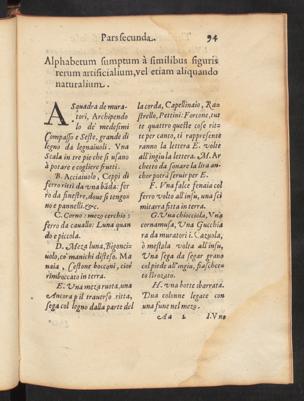 Pars secunda.
94
Alphabetum sumptum à similibus figuris
rerum artificialium, vel etiam aliquando
naturalium.
A Squadra de mura-
tori, Archipendo
lo de medesimi
Compasso e Seste, grande di
legno da legnaiuoli. Vna
Scala in tre pie che si usano
à potare e cogliere frutti.
B. Acciaiuolo, Ceppi di
ferro ritti da vna bãda: fer
ro da finestre, doue si tengon
no e pannelli, &c.
C. Corno: mezo cerchio:
ferro da cauallo: Luna quan
do e piccola.
D. Meza luna, Bigonciz
uolo, co' manichi disteso. Ma
naia, Cestone bocconi, cioè
rimboccato in terra.
E. Vna meza ruota, una
Ancora p il trauerso ritta,
sega col legno dalla parte del
la corda, Capellinaio, Ras
strello, Pettini: Forcone, tut
te quattro queste cose rit-
te per canto, ti rapresente
ranno la lettera E. volte
all'ingiu la lettera. M. Ar
chetto da sonare la lira an-
chor potrà seruir per E.
F. Vna falce fenaia col
ferro volto all'insu, una sci
mitarra fitta in terra.
G. Vna chiocciola, Vna
cornamusa, Vna Gucchia
ra da muratori i. Cazuola,
ò mestola volta all'insu,
Vna sega da segar grano
col piede all'ingiu, fiaschet=
to strozato.
H. Vna botte sbarrata.
Due colonne legate con
una fune nel mezo.
Aa 2
I. Vna